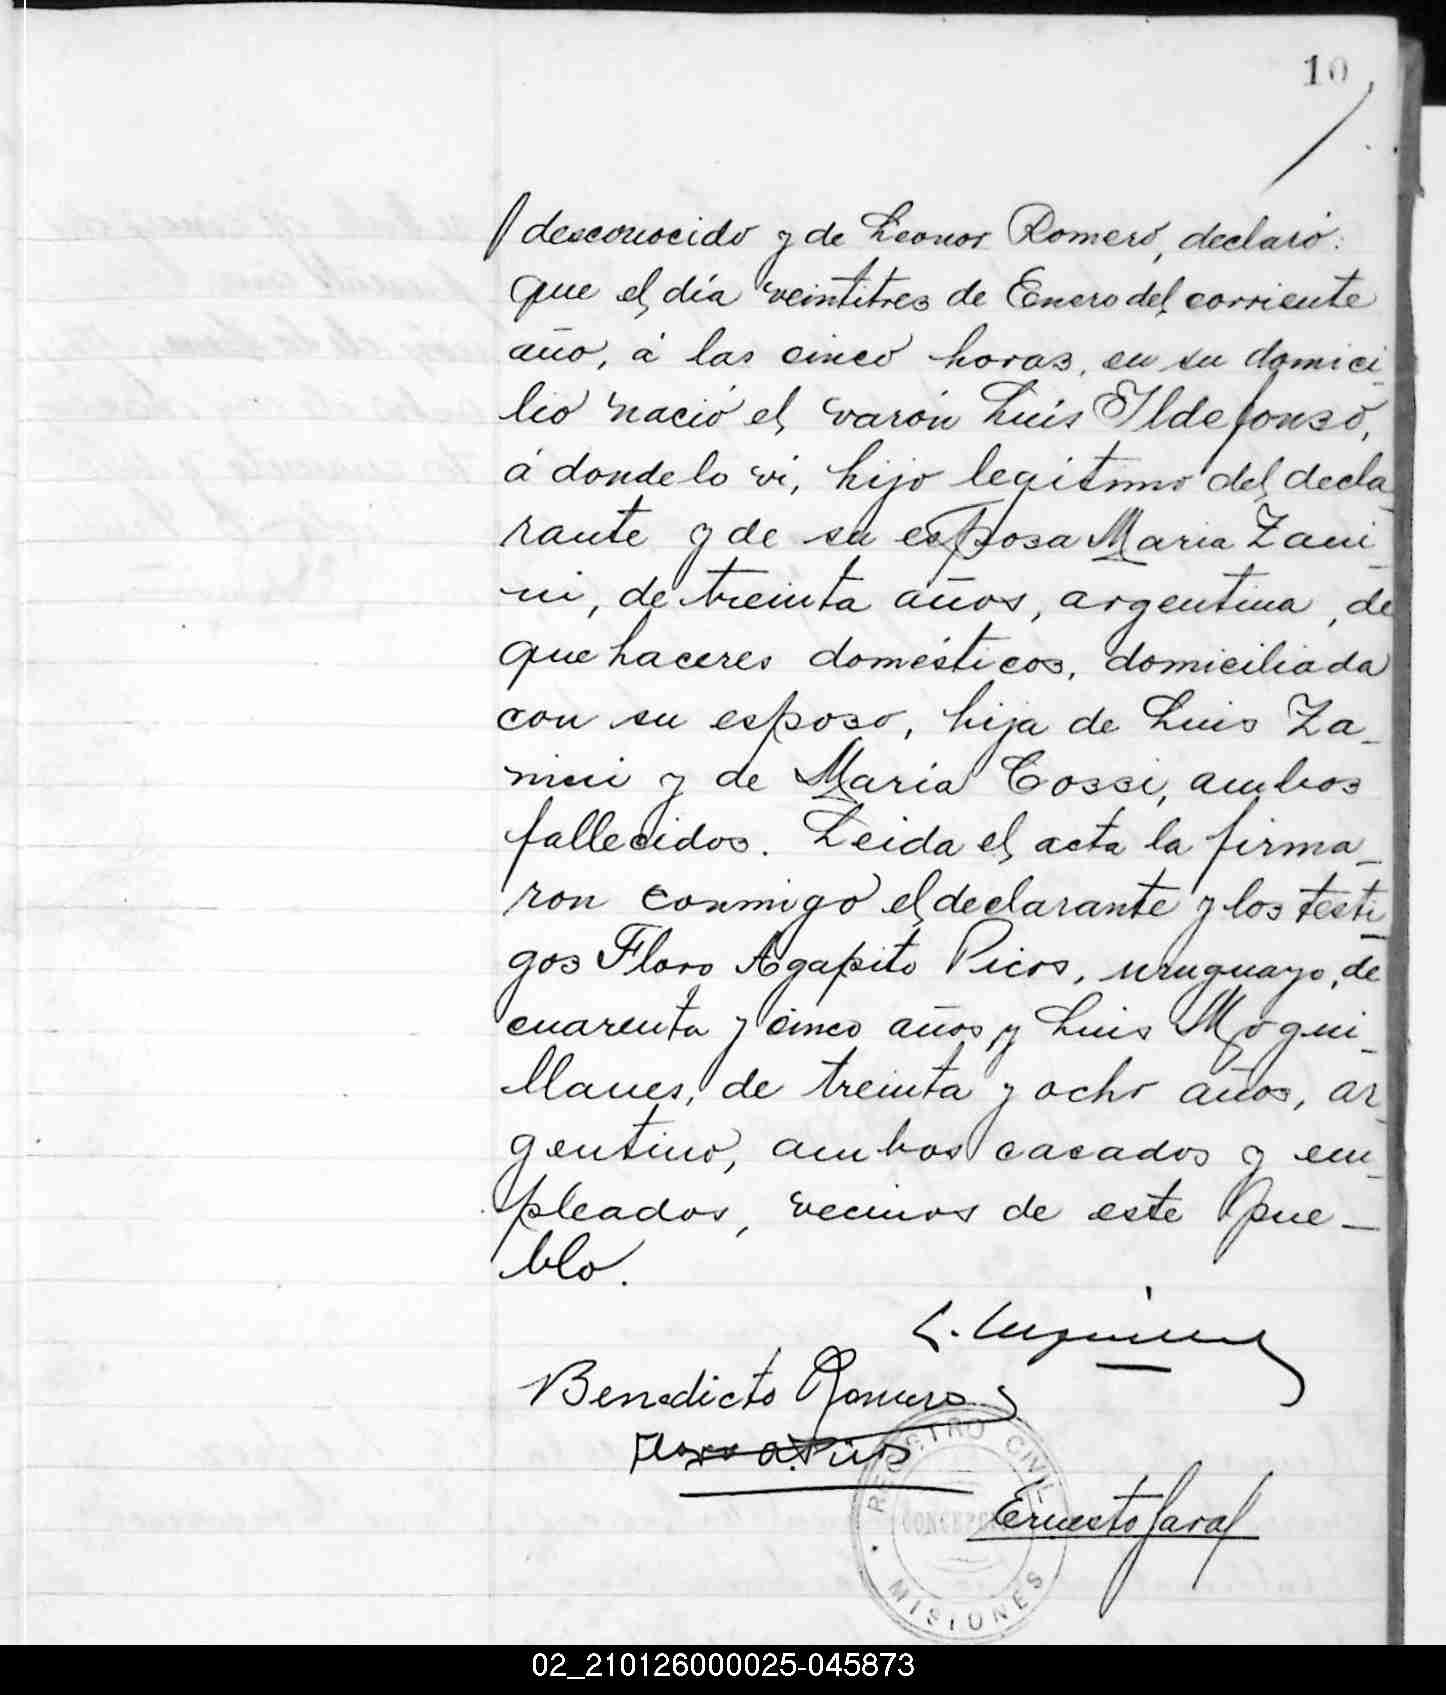 10
desconocido y de Leonor Romero, declaró:
que el día veintitres de Enero del corriente
año, á las cinco horas, en su domici_
lio nació el varón Luis Ildefonso,
á donde lo vi, hijo legitimo del decla_
rante y de su esposa Maria Zani_
ni, de treinta años, argentina, de
quehaceres domésticos, domiciliada
con su esposo, hija de Luis Za_
nini y de María Cossi, ambos
fallecidos. Leida el acta la firma_
ron conmigo el declarante y los testi_
gos Floro Agapito Picos, uruguayo, de
cuarenta y cinco años y Luis Moqui_
llanes, de treinta y ocho años, ar_
gentino, ambos casados y em_
pleados, vecinos de este pue_
blo.
L.
Benedicto Romero
Floro A. Picos
REGISTRO CIVIL
CONCEPCIÓN
Ernesto
MISIONES
02_210126000025-045873